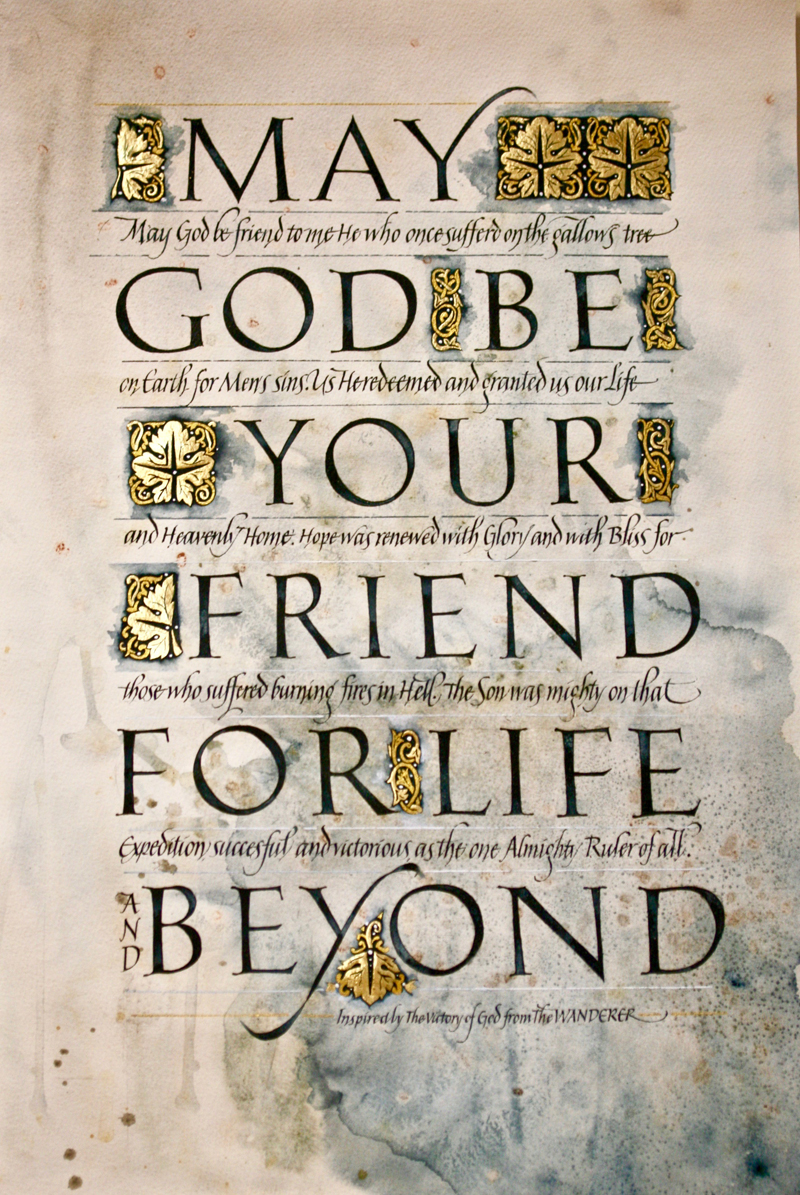 MAY
May God be friend to me He who once sufferd on the gallows tree
GOD BE
on Earth for Men's sins. Us He redeemed and granted us our Life
YOUR
and Heavenly Home. Hope was renewed with Glory and with Bliss for
FRIEND
those who suffered burning fires in Hell. The Son was mighty on that
FOR LIFE
Expedition succesful and victorious as the one Almighty Ruler of all.
AND BEYOND
Inspired by The Victory of God from The WANDERER